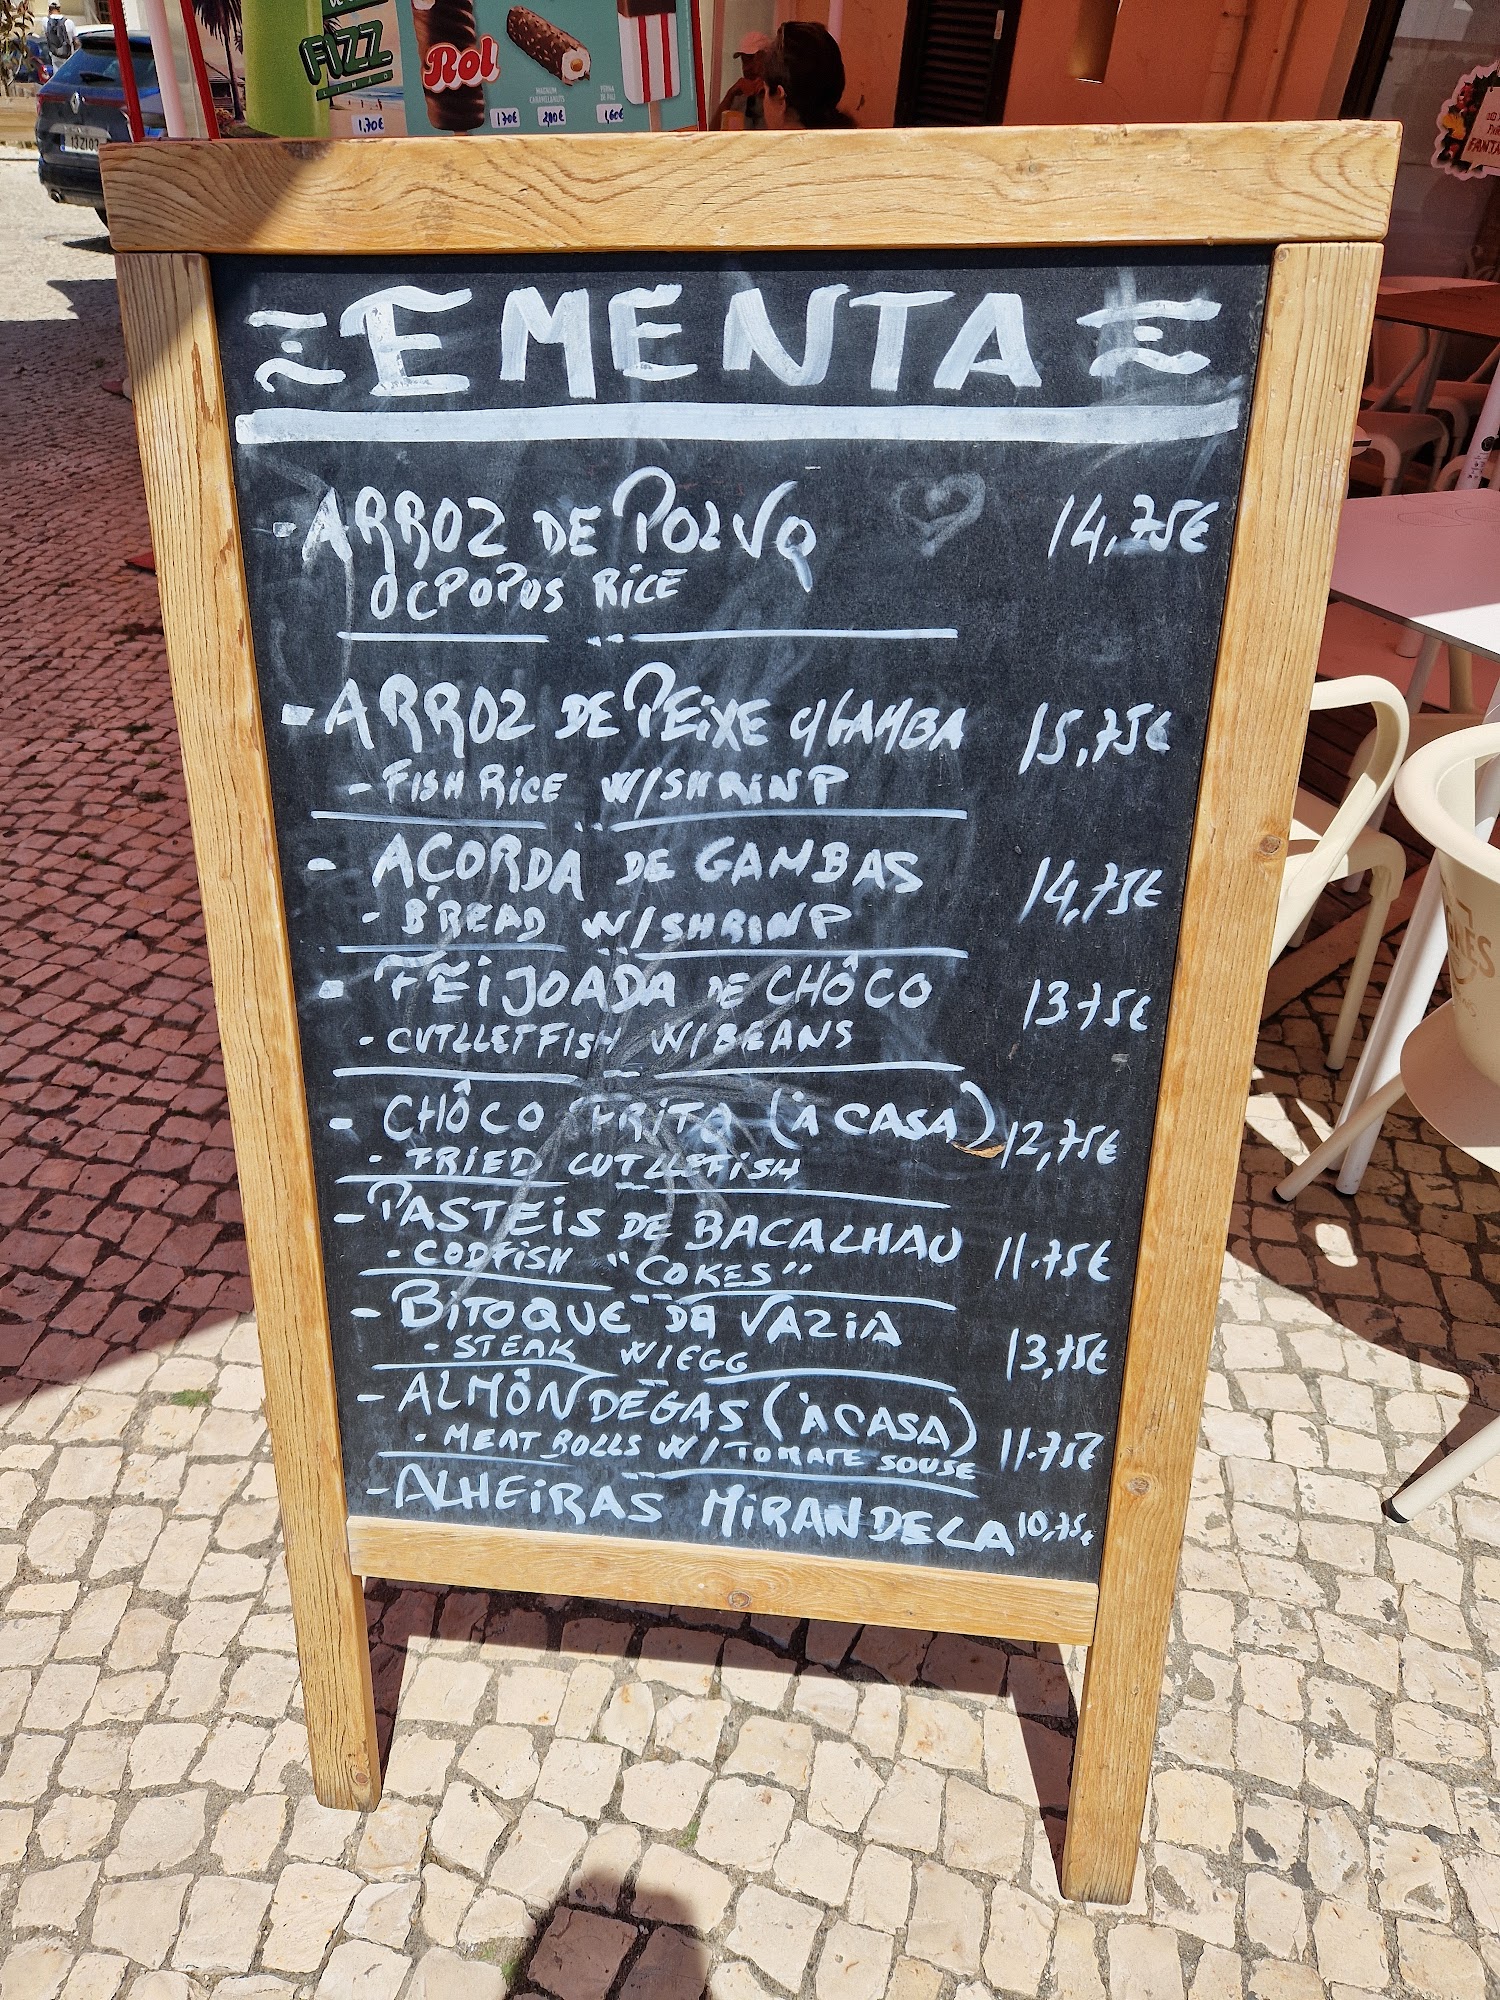 FIZZ
LIMÃO
1,70€
Rol
1,70€
MAGNUM
2,80€
PERNA
DE PAU
1,60€
132102
FANTA
EMENTA
-ARROZ DE POLVO 14,75€
OCPOPUS RICE
-ARROZ DE PEIXE C/GAMBA 15,75€
- FISH RICE W/SHRINP
- AÇORDA DE GAMBAS 14,75€
- BREAD W/SHRINP
- FEIJOADA DE CHÔCO 13.75€
- CUTLLETFISH W/BEANS
- CHÔCO FRITO (À CASA) 12,75€
- FRIED CUTLLEFISH
- PASTEIS DE BACALHAU 11.75€
- CODFISH "COKES"
- BITOQUE DA VAZIA 13,75€
- STEAK W/EGG
- ALMÔNDEGAS (À CASA) 11.75€
- MEAT BOLLS W/TOMATE SOUSE
-ALHEIRAS MIRANDELA 10,75€